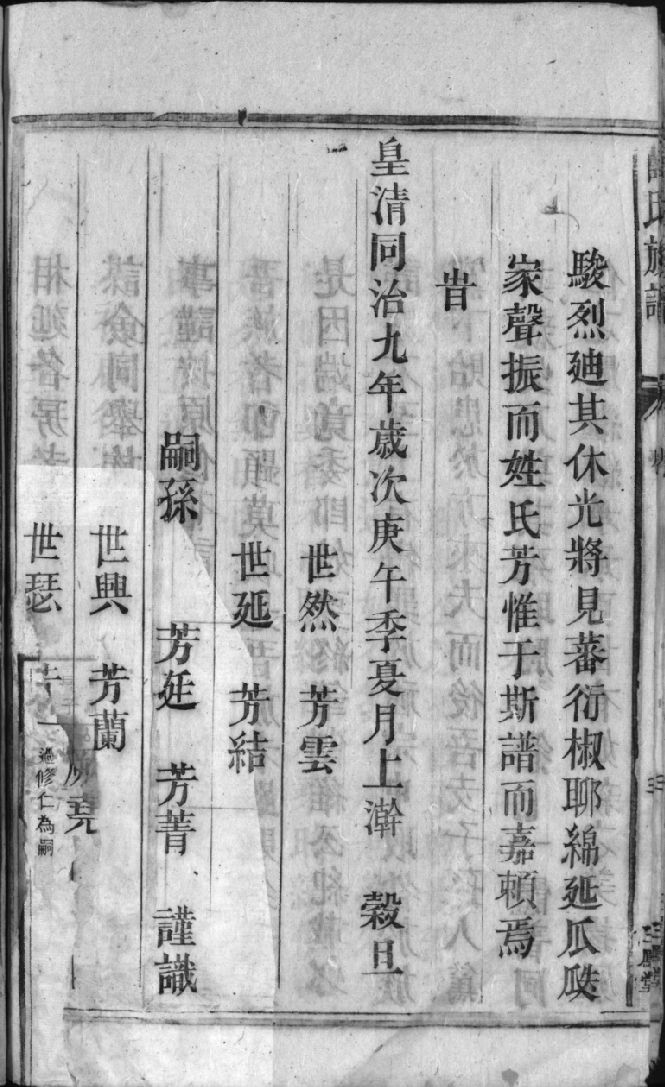 氏族譜
駿烈廸其休光將見蕃衍椒聊綿延瓜瓞
家聲振而姓氏芳惟于斯譜而嘉賴焉
旹
皇清同治九年歲次庚午季夏月上澣 穀旦
世然 芳雲
世延 芳結
嗣孫 芳廷 芳菁 謹識
世興 芳蘭
世瑟
過修仁為嗣